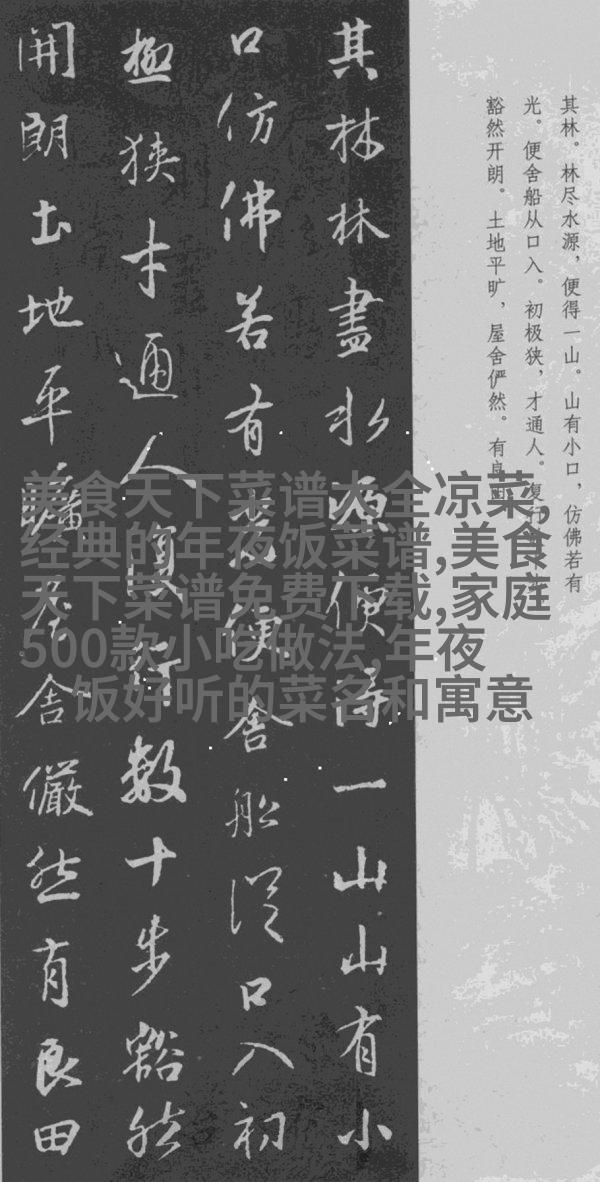 其林。林尽水源，便得一山。山有小口，仿佛若有
光。便舍船从口入。初极狭，才通人。复行
豁然开朗。土地平旷，屋舍俨然。有良
其林林盡水源便得一山山有小
口仿佛若有光便舍船從口入初
極狹才通人復行數十步豁然
開朗土地平曠屋舍儼然有良田
美食天下菜谱大全凉菜,
经典的年夜饭菜谱,美食
天下菜谱免费下载,家庭
500款小吃做法,年夜
饭好听的菜名和寓意